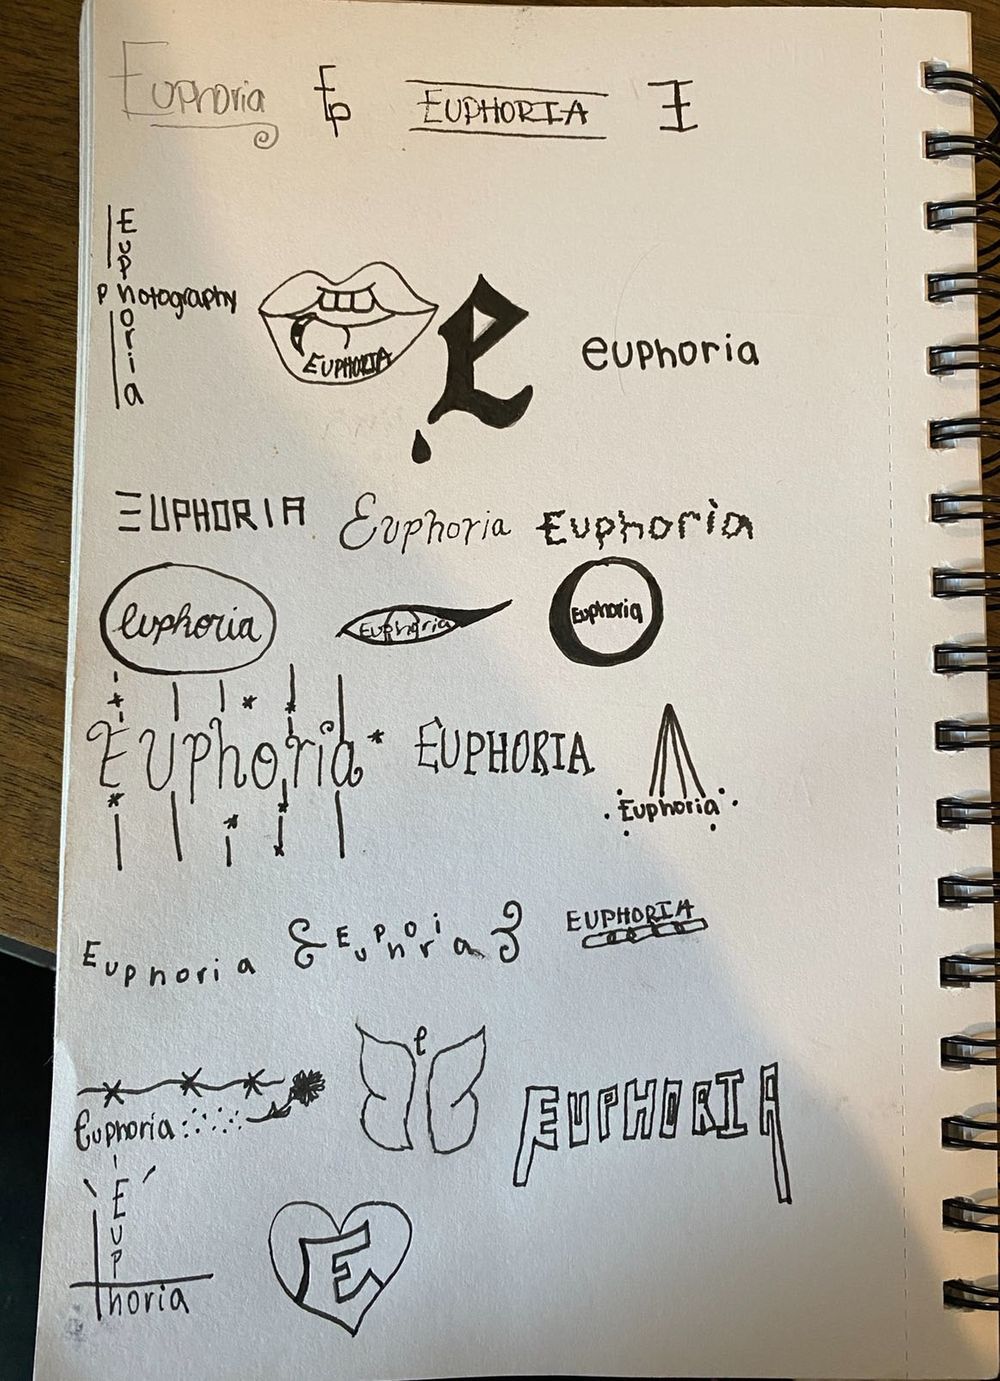 Euphoria
Ep
EUPHORIA
E
Euphoria
Photography
EUPHORIA
e
euphoria
EUPHORIA
Euphoria
Euphoria
Euphoria
Euphoria
Euphoria
Euphoria
EUPHORIA
Euphoria
Euphoria
Euphoria
EUPHORIA
e
Euphoria
EUPHORIA
Euphoria
E